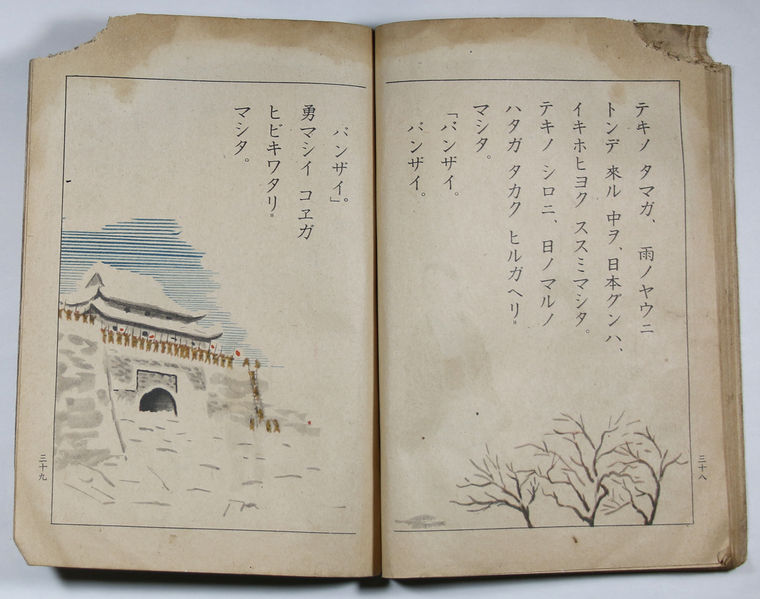 テキノ タマガ、 雨ノヤウニ
トンデ 來ル 中ヲ、日本グンハ、
イキホヒヨク ススミマシタ。
テキノ シロニ、日ノマルノ
ハタガ タカク ヒルガヘリ
マシタ。
「バンザイ。
バンザイ。
三十八
バンザイ」。
勇マシイ コヱガ
ヒビキワタリ
マシタ。
三十九